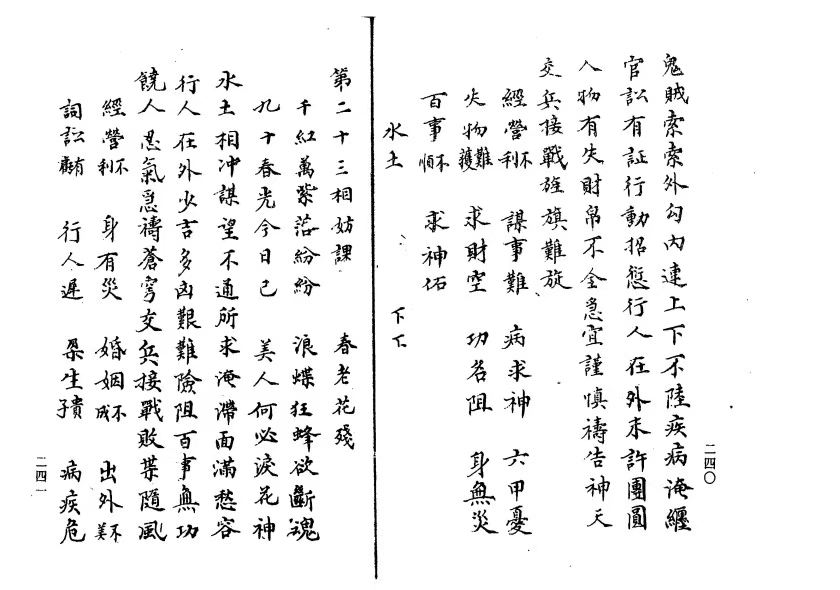 鬼賊索索外勾內連上下不陸疾病淹纏
官訟有証行動招愆行人在外未許團圓
人物有失財帛不全急宜謹慎禱告神天
交兵接戰旌旗難旋
經營不利 謀事難 病求神 六甲憂
失物難獲 求財空 功名阻 身無災
百事不順 求神佑
水土 下下
二四〇
第二十三相妨課 春老花殘
千紅萬紫落紛紛 浪蝶狂蜂欲斷魂
九十春光今日已 美人何必淚花神
水土相冲謀望不通所求淹滯面滿愁容
行人在外少吉多凶艱難險阻百事無功
饒人忍氣急禱蒼穹交兵接戰敗葉隨風
經營不利 身有災 婚姻不成 出外不美
詞訟有 行人遲 生貴子 病疾危
二四一